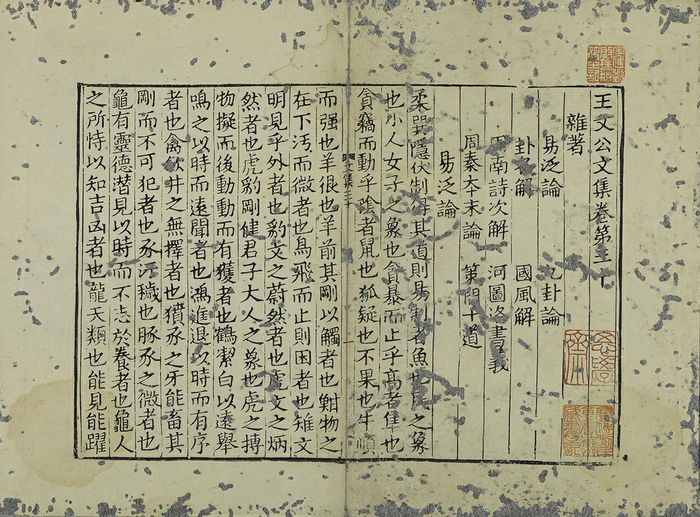 王文公文集卷第三十
雜著
易泛論 九卦論
卦名解 國風解
周南詩次解 河圖洛書義
周秦本末論 策問十道
易泛論
柔巽隱伏制得其道則易制者魚也民之象
也小人女子之象也貪暴而止乎高者隼也
貪竊而動乎陰者鼠也狐疑也不果也牛順
而强也羊很也羊前其剛以觸者也鮒物之
在下汚而微者也鳥飛而止則困者也雉文
明見乎外者也豹文之蔚然者也虎文之炳
然者也虎豹剛健君子大人之象也虎之搏
物擬而後動動而有獲者也鶴潔白以遠舉
鳴之以時而遠聞者也鴻進退以時而有序
者也禽欲井之無擇者也豶豕之牙能畜其
剛而不可犯者也豕汚穢也豚豕之微者也
龜有靈德潛見以時而不志於養者也龜人
之所恃以知吉凶者也龍天類也能見能躍